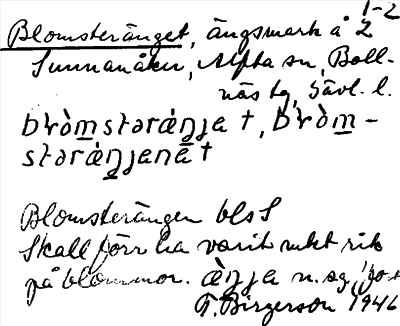 1-2
Blomsteränget, ängsmark å 2
Sunnanåker, Alfta sn, Boll-
näs tg, Gävl. l.
bròm̲stəráŋja †, bròm̲-
stəráŋjena †
Blomsterängen bls S
Skall förr ha varit mkt rik
på blommor. àŋja n. sg.
T. Birgerson 1946